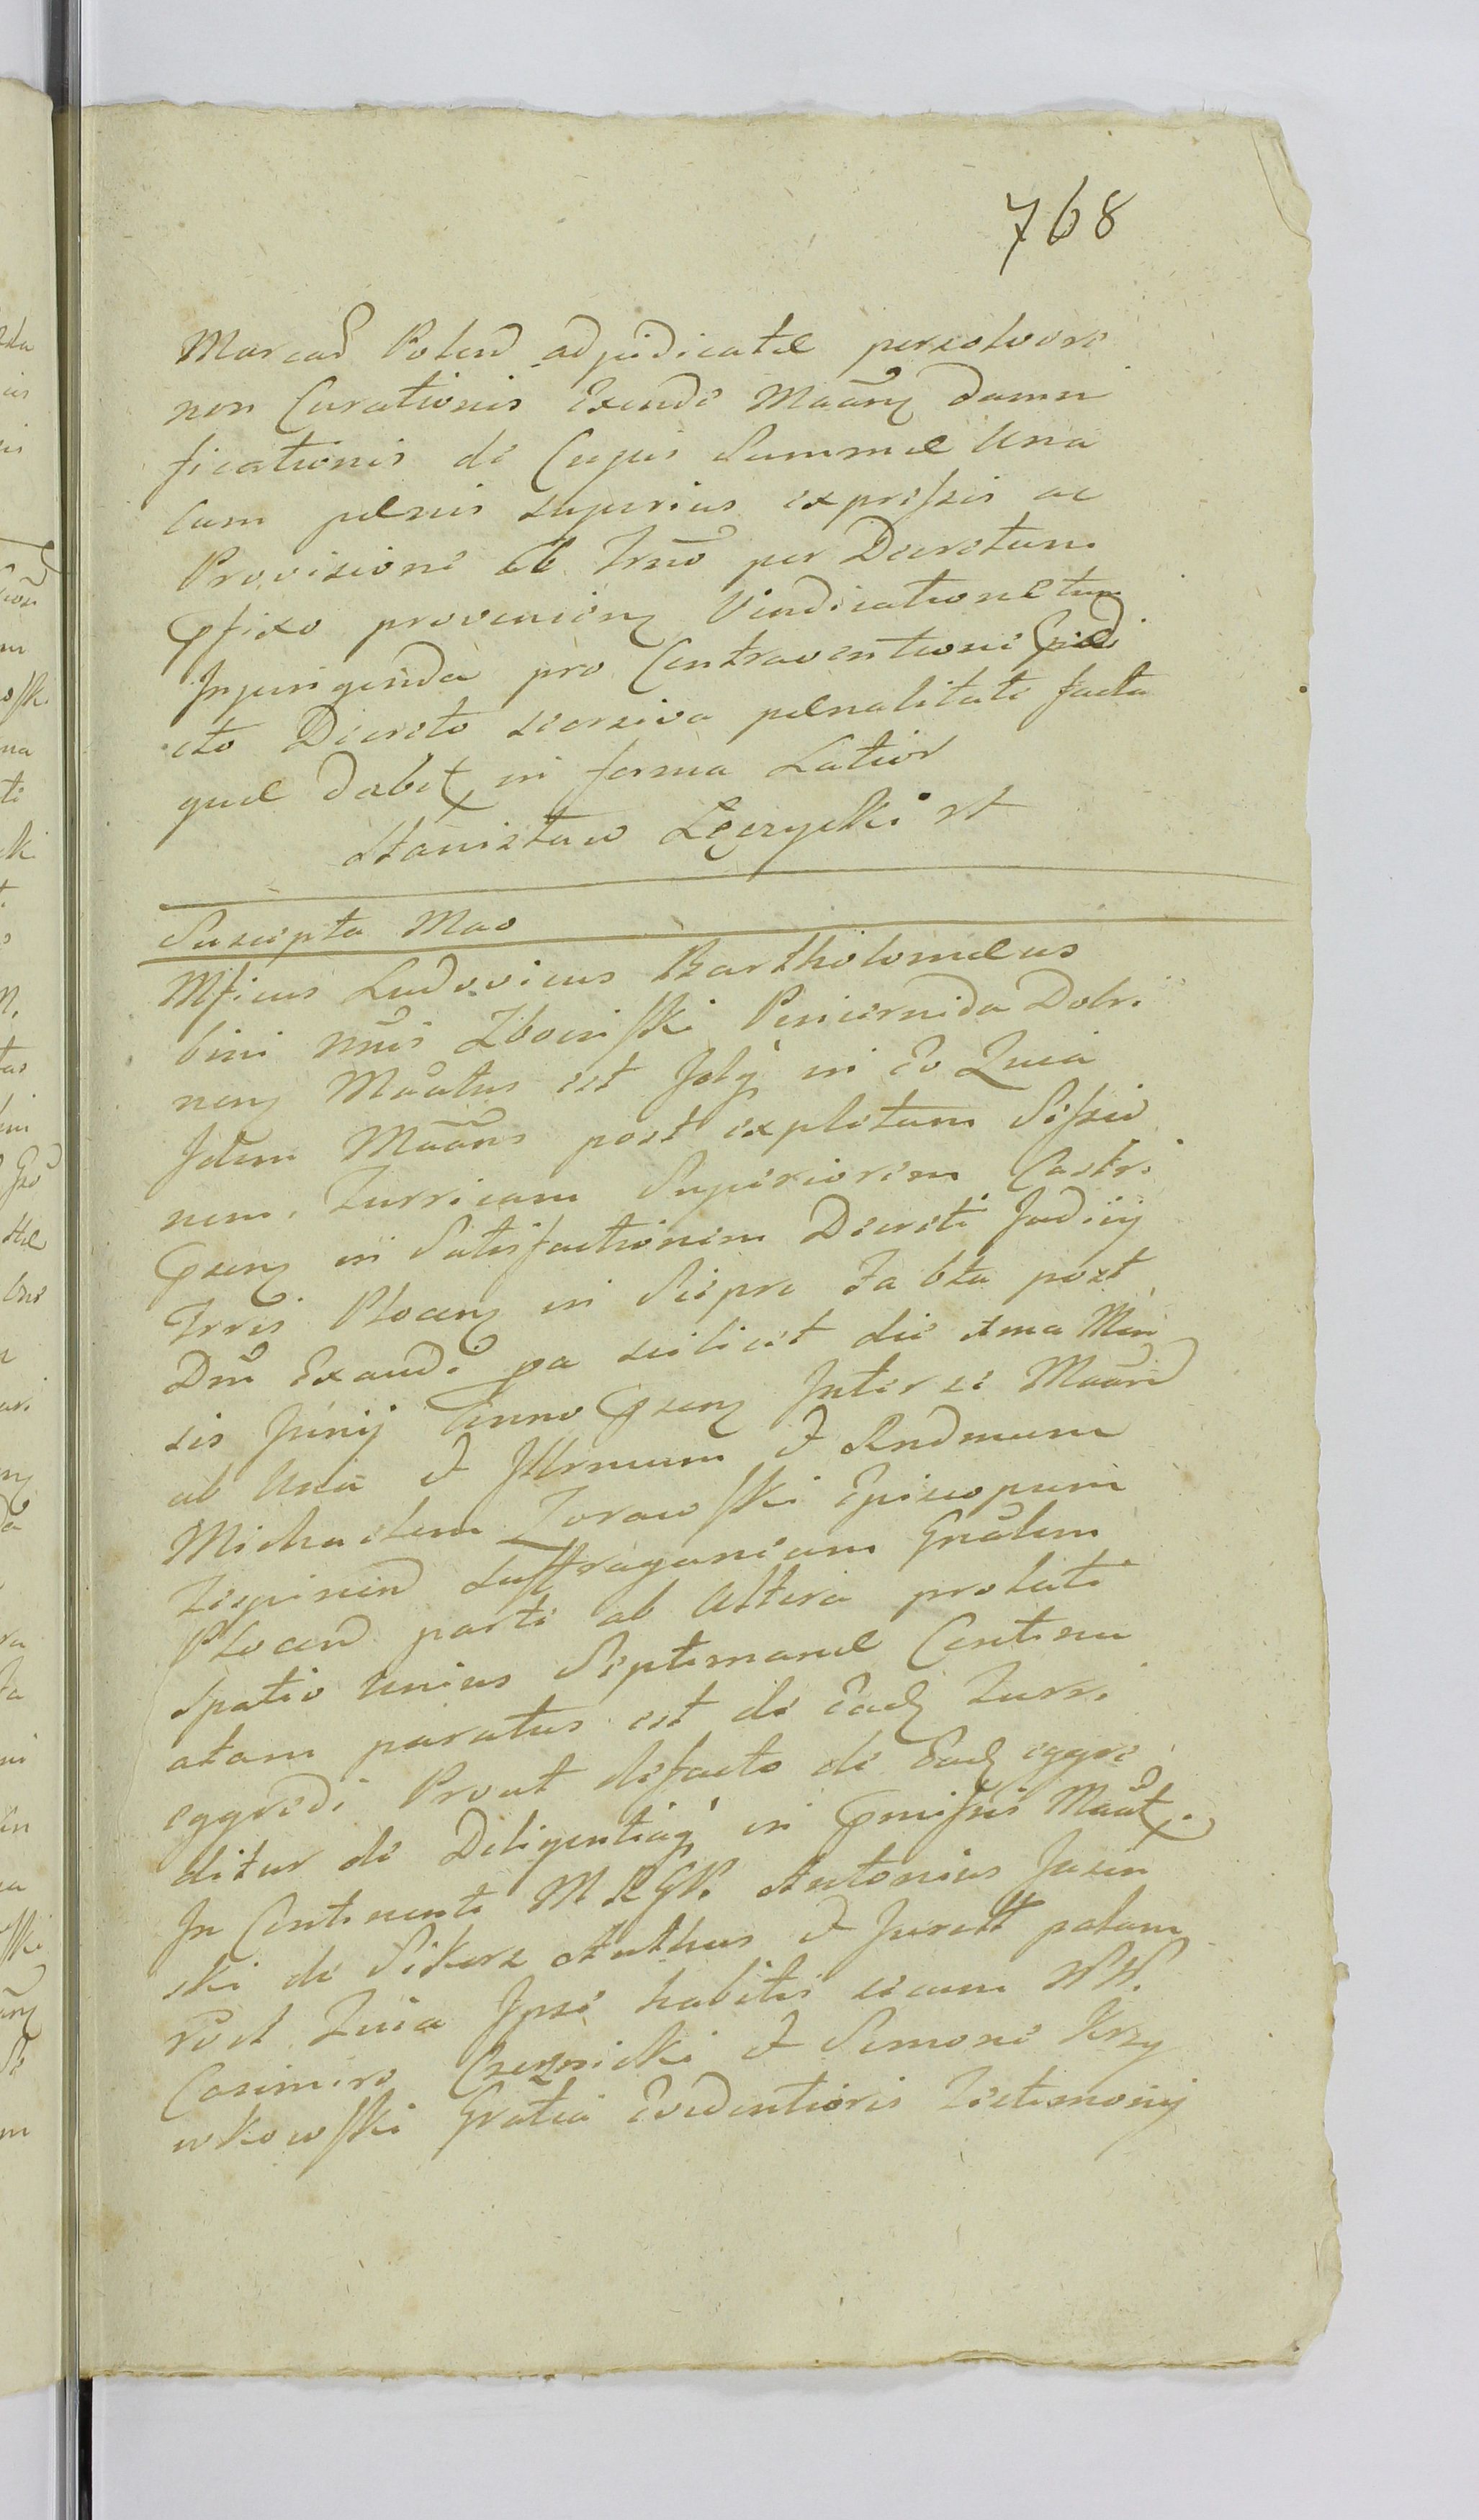 768
Marcas Polend adjudicatæ persolvere
non Curationis Exinde Maãnz damni
ficationis de Cujus Summæ Una
Cum pœnis superius expressis ac
Provisione ab Trno per Decretum
pfixo provenienz Vindicatione tum
Injungenda pro Contraventione Prædi
cto Decreto seorsiva pœnalitate facta
quæ dabitz in forma Latior
Stanisław Łęczycki rt
Suscepta Mao
Mficus Ludovicus Bartholomæus
bini nnis Zboinski Pincernida Dobri
nenz Maatus est Joly in Eo Quia
Idem Maans post expletam Sessio
nem Turrieam Superiorem Castri
psenz in Satisfactionem Decreti Judicij
Trris Plocenz in Sierpc Fa 6ta post
Dm Exaudi pa scilicet die xma Men
sis Junij Anno psenz Inter se Maand
ab Una et Illrmum et Rndmum
Michaelem Zorawski Episcopum
Suffraganeum Gnalem
Plocend parte ab Altera prolati
Spatio Unius Septimanæ Continu
atam paratus est de Eadz Turri
eggredi Prout defacto de Eadz eggre
ditur de Diligentiaq in pmissis Maatz
In Continenti M R G R. Antonius Jasin
ski de Sikorz Authus et Juratt palam
rcd Quia Ipse habitis secum NN.
Casimiro et Simone Krzy
wkowski Gratia Evidentioris Testimonij